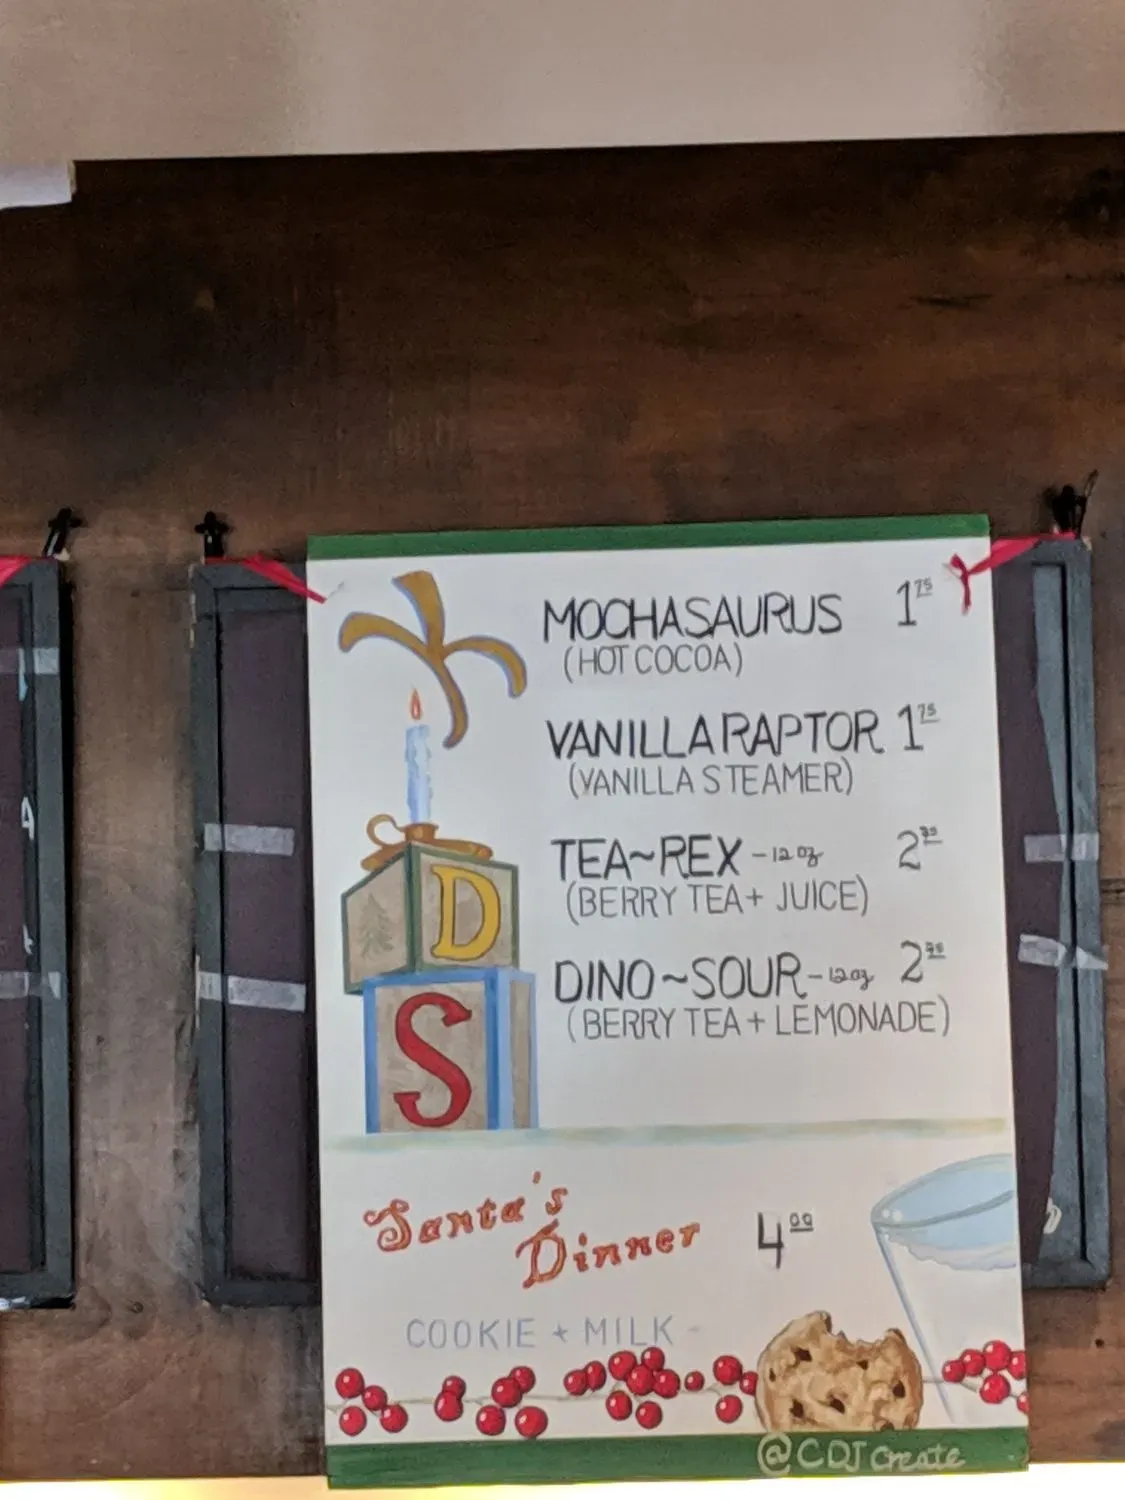 MOCHASAURUS 1 75
(HOT COCOA)
VANILLARAPTOR 1 75
(VANILLA STEAMER)
TEA~REX -12 oz 2
(BERRY TEA + JUICE)
DINO~SOUR -12oz 2
(BERRY TEA + LEMONADE)
D
S
Santa's
Dinner 4 00
COOKIE + MILK
@CDJ create